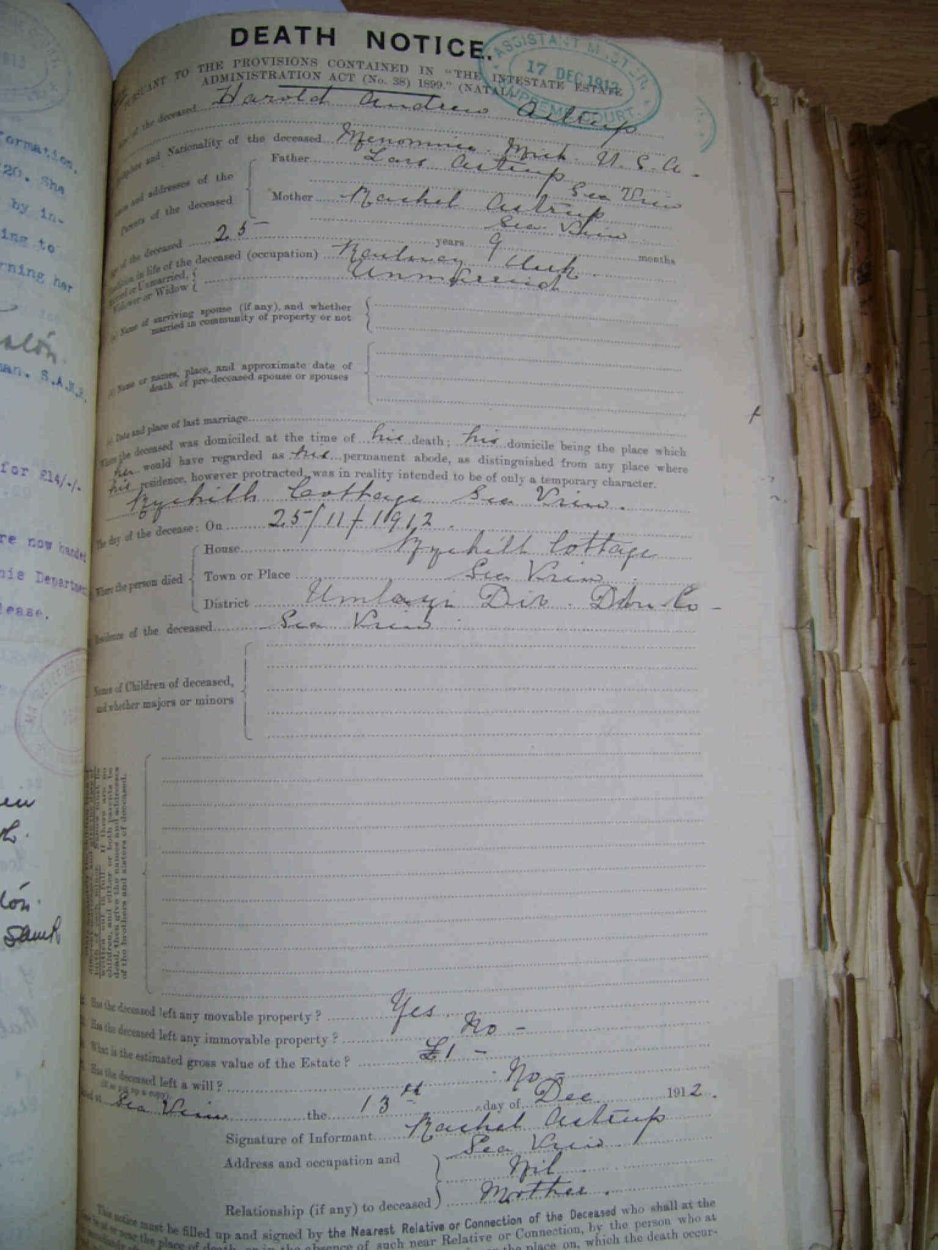 DEATH NOTICE.
PURSUANT TO THE PROVISIONS CONTAINED IN "THE INTESTATE ESTATE
ADMINISTRATION ACT (No. 38) 1899." (NATAL)
ASSISTANT MASTER
17 DEC 1912
SUPREME COURT
of the deceased Harold Andrew Astrup
Birthplace and Nationality of the deceased Menominee. Mich. U. S. A.
Names and addresses of the Parents of the deceased
Father Lars Astrup
Sea View
Mother Rachel Astrup
Sea View
Age of the deceased 25 years 9 months
Condition in life of the deceased (occupation) Railway Clerk
Married or Unmarried, Widower or Widow Unmarried
(a) Name of surviving spouse (if any), and whether
married in community of property or not
(b) Name or names, place, and approximate date of
death of pre-deceased spouse or spouses
(c) Date and place of last marriage
Where the deceased was domiciled at the time of his death; his domicile being the place which
he would have regarded as his permanent abode, as distinguished from any place where
his residence, however protracted, was in reality intended to be of only a temporary character.
Ryehill Cottage Sea View.
The day of the decease: On 25/11/1912.
Where the person died
House Ryehill Cottage
Town or Place Sea View
District Umlazi Div. Dbn Co -
Residence of the deceased Sea View
Names of Children of deceased,
and whether majors or minors
children, and either or both parents be
dead, then give the names and addresses
of the brothers and sisters of deceased.
Has the deceased left any movable property? Yes.
Has the deceased left any immovable property? No -
What is the estimated gross value of the Estate? £1 -
Has the deceased left a will? No -
Dated at Sea View the 13th day of Dec 1912.
Signature of Informant Rachel Astrup
Address and occupation and Sea View
Nil
Relationship (if any) to deceased Mother.
This notice must be filled up and signed by the Nearest Relative or Connection of the Deceased who shall at the
near the place of death, or in the absence of such near Relative or Connection, by the person who at
the place on, which the death occur-
formation.
20. She
by in-
ing to
rning her
man. S.A.M.R.
for £14/-/-
re now handed
his Department
lease.